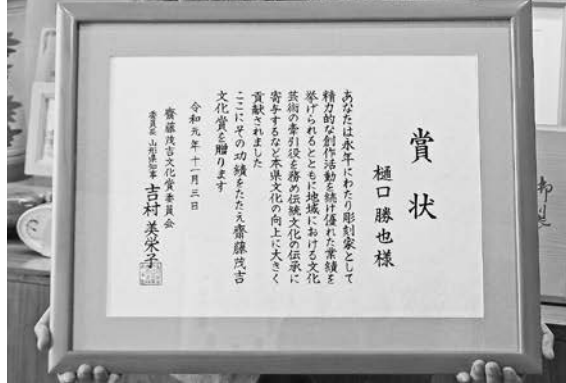 賞状
樋口勝也様
あなたは永年にわたり彫刻家として
精力的な創作活動を続け優れた業績を
挙げられるとともに地域における文化
芸術の牽引役を務め伝統文化の伝承に
寄与するなど本県文化の向上に大きく
貢献されました
ここにその功績をたたえ齋藤茂吉
文化賞を贈ります
令和元年十一月三日
齋藤茂吉文化賞委員会
委員長 山形県知事 吉村美栄子